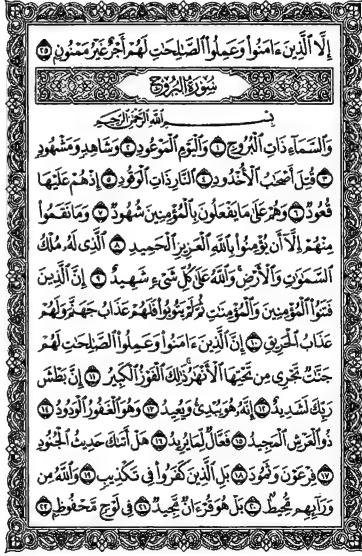 إِلَّا ٱلَّذِينَ ءَامَنُوا۟ وَعَمِلُوا۟ ٱلصَّٰلِحَٰتِ لَهُمْ أَجْرٌ غَيْرُ مَمْنُونٍۭ ٢٥
سُورَةُ البُرُوج
بِسْمِ ٱللَّهِ ٱلرَّحْمَٰنِ ٱلرَّحِيمِ
وَٱلسَّمَآءِ ذَاتِ ٱلْبُرُوجِ ١ وَٱلْيَوْمِ ٱلْمَوْعُودِ ٢ وَشَاهِدٍ وَمَشْهُودٍ
٣ قُتِلَ أَصْحَٰبُ ٱلْأُخْدُودِ ٤ ٱلنَّارِ ذَاتِ ٱلْوَقُودِ ٥ إِذْ هُمْ عَلَيْهَا
قُعُودٌ ٦ وَهُمْ عَلَىٰ مَا يَفْعَلُونَ بِٱلْمُؤْمِنِينَ شُهُودٌ ٧ وَمَا نَقَمُوا۟
مِنْهُمْ إِلَّآ أَن يُؤْمِنُوا۟ بِٱللَّهِ ٱلْعَزِيزِ ٱلْحَمِيدِ ٨ ٱلَّذِى لَهُۥ مُلْكُ
ٱلسَّمَٰوَٰتِ وَٱلْأَرْضِ وَٱللَّهُ عَلَىٰ كُلِّ شَىْءٍ شَهِيدٌ ٩ إِنَّ ٱلَّذِينَ
فَتَنُوا۟ ٱلْمُؤْمِنِينَ وَٱلْمُؤْمِنَٰتِ ثُمَّ لَمْ يَتُوبُوا۟ فَلَهُمْ عَذَابُ جَهَنَّمَ وَلَهُمْ
عَذَابُ ٱلْحَرِيقِ ١٠ إِنَّ ٱلَّذِينَ ءَامَنُوا۟ وَعَمِلُوا۟ ٱلصَّٰلِحَٰتِ لَهُمْ
جَنَّٰتٌ تَجْرِى مِن تَحْتِهَا ٱلْأَنْهَٰرُ ذَٰلِكَ ٱلْفَوْزُ ٱلْكَبِيرُ ١١ إِنَّ بَطْشَ
رَبِّكَ لَشَدِيدٌ ١٢ إِنَّهُۥ هُوَ يُبْدِئُ وَيُعِيدُ ١٣ وَهُوَ ٱلْغَفُورُ ٱلْوَدُودُ ١٤
ذُو ٱلْعَرْشِ ٱلْمَجِيدُ ١٥ فَعَّالٌ لِّمَا يُرِيدُ ١٦ هَلْ أَتَىٰكَ حَدِيثُ ٱلْجُنُودِ
١٧ فِرْعَوْنَ وَثَمُودَ ١٨ بَلِ ٱلَّذِينَ كَفَرُوا۟ فِى تَكْذِيبٍ ١٩ وَٱللَّهُ مِن
وَرَآئِهِم مُّحِيطٌۢ ٢٠ بَلْ هُوَ قُرْءَانٌ مَّجِيدٌ ٢١ فِى لَوْحٍ مَّحْفُوظٍۭ ٢٢